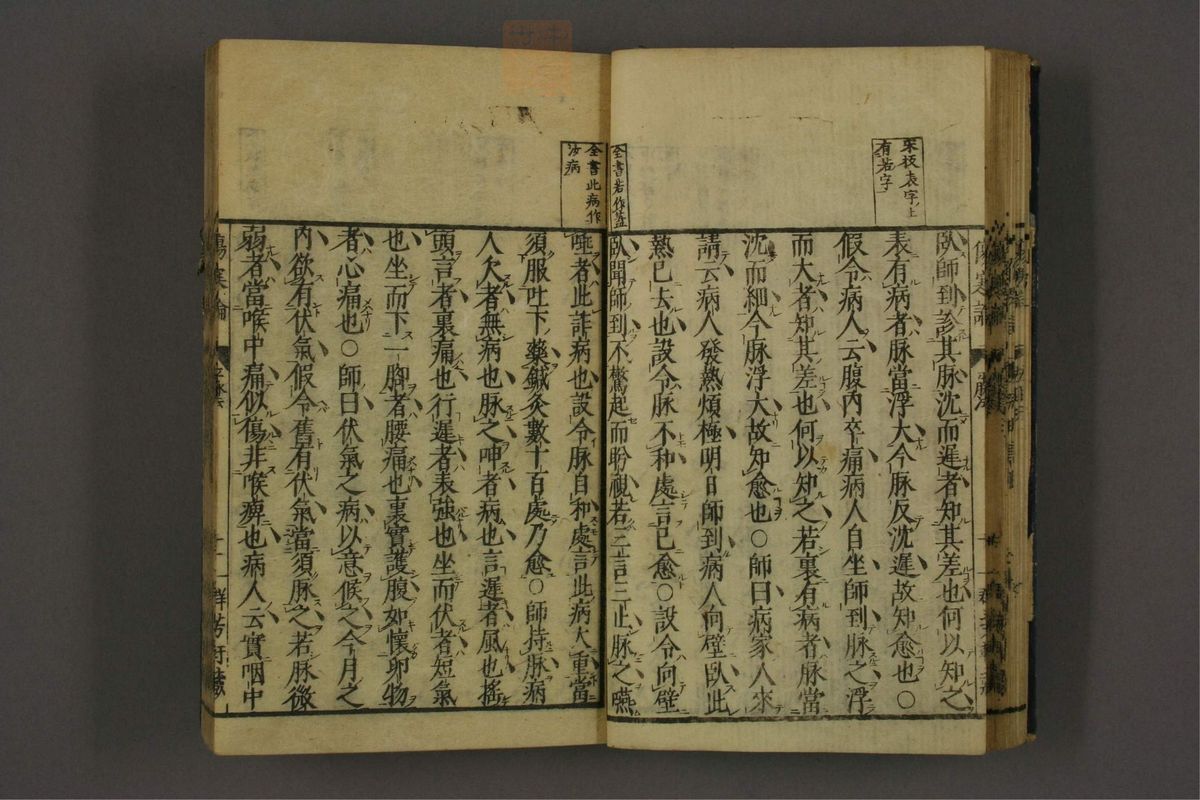 宋板表字ノ上
有若字
臥師到診其脉沈而遲者知其差也何以知之
表有病者脉當浮大今脉反沈遲故知愈也○
假令病人云腹內卒痛病人自坐師到脉之浮
而大者知其差也何以知之若裏有病者脉當
沈而細今脉浮大故知愈也○師曰病家人來
請云病人發熱煩極明日師到病人向壁臥此
熱已去也設令脉不和處言已愈○設令向壁
全書若作蓋
臥聞師到不驚起而盻視若三言三止脉之嚥
全書此病作
汝病
唾者此詐病也設令脉自和處言此病大重當
須服吐下藥鍼灸數十百處乃愈○師持脉病
人欠者無病也脉之呻者病也言遲者風也搖
頭言者裏痛也行遲者表強也坐而伏者短氣
也坐而下一腳者腰痛也裏實護腹如懷卵物
者心痛也○師曰伏氣之病以意候之今月之
內欲有伏氣假令舊有伏氣當須脉之若脉微
弱者當喉中痛似傷非喉痺也病人云實咽中
傷寒論